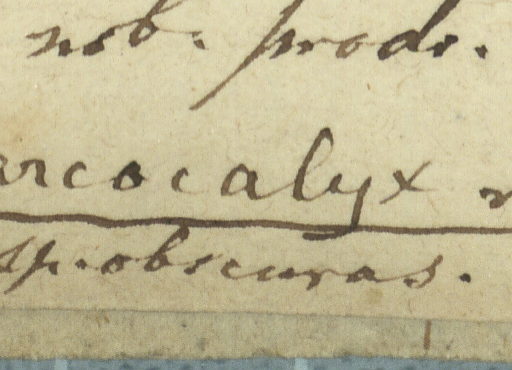 nob. prodr.
arcocalyx
sp. obscuras.